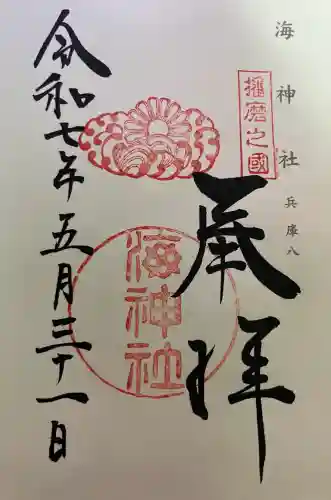 海神社 兵庫八
播磨之國
奉拝
海神社
令和七年五月三十一日